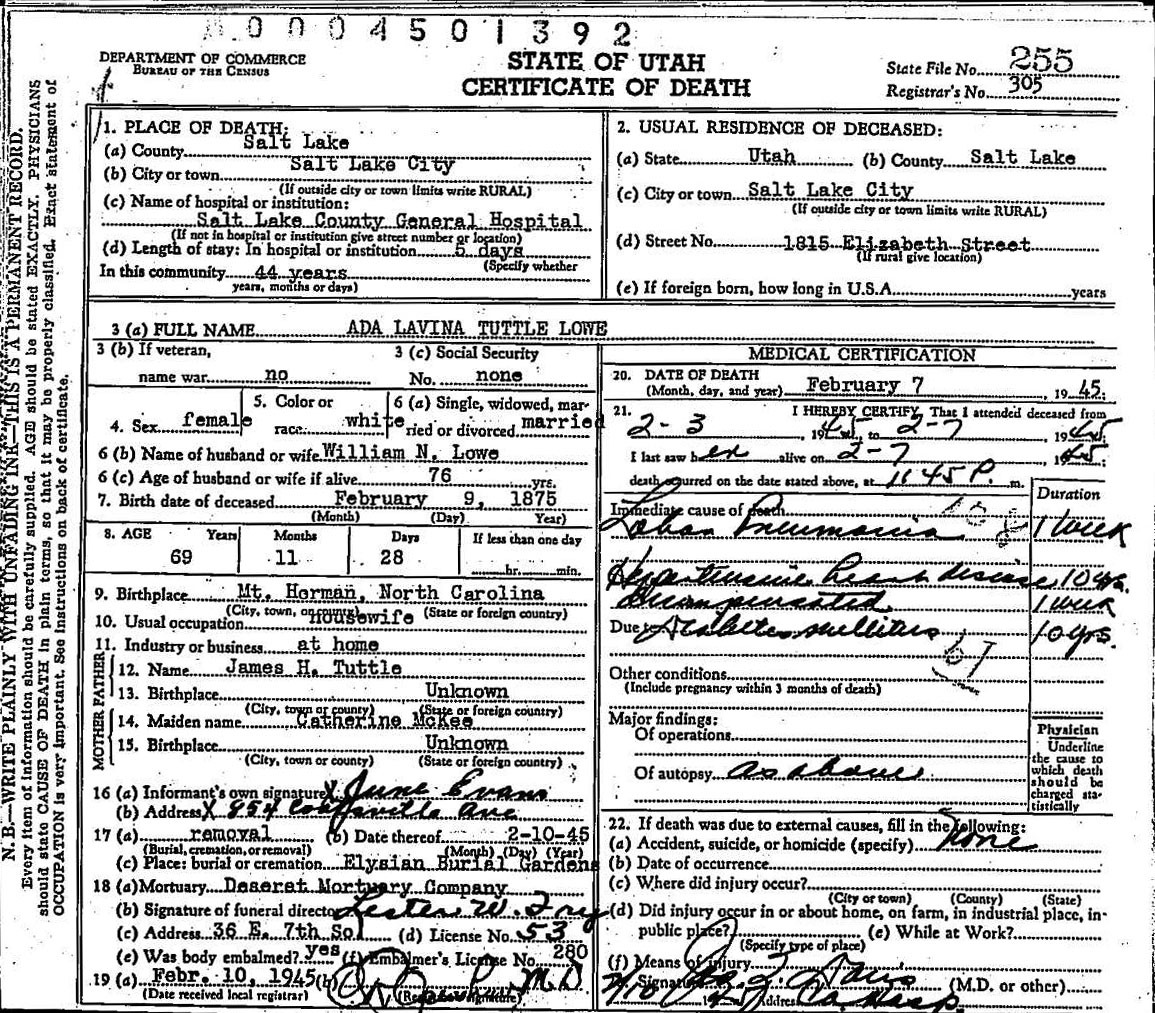 0004501392
DEPARTMENT OF COMMERCE
BUREAU OF THE CENSUS
STATE OF UTAH
CERTIFICATE OF DEATH
State File No. 255
Registrar's No. 305
N. B.—WRITE PLAINLY WITH UNFADING INK—THIS IS A PERMANENT RECORD.
Every item of information should be carefully supplied. AGE should be stated EXACTLY. PHYSICIANS
should state CAUSE OF DEATH in plain terms, so that it may be properly classified. Exact statement of
OCCUPATION is very important. See instructions on back of certificate.
1. PLACE OF DEATH:
(a) County Salt Lake
(b) City or town Salt Lake City
(If outside city or town limits write RURAL)
(c) Name of hospital or institution:
Salt Lake County General Hospital
(If not in hospital or institution give street number or location)
(d) Length of stay: In hospital or institution 5 days
(Specify whether
In this community 44 years
years, months or days)
2. USUAL RESIDENCE OF DECEASED:
(a) State Utah (b) County Salt Lake
(c) City or town Salt Lake City
(If outside city or town limits write RURAL)
(d) Street No. 1815 Elizabeth Street
(If rural give location)
(e) If foreign born, how long in U.S.A. years
3 (a) FULL NAME ADA LAVINA TUTTLE LOWE
3 (b) If veteran, 3 (c) Social Security
name war no No. none
4. Sex female 5. Color or race white 6 (a) Single, widowed, married or divorced married
6 (b) Name of husband or wife William N. Lowe
6 (c) Age of husband or wife if alive 76 yrs.
7. Birth date of deceased February 9, 1875
(Month) (Day) Year)
8. AGE Years Months Days If less than one day
69 11 28 hr. min.
9. Birthplace Mt. Herman, North Carolina
(City, town, or county) (State or foreign country)
10. Usual occupation housewife
11. Industry or business at home
FATHER
12. Name James H. Tuttle
13. Birthplace Unknown
(City, town or county) (State or foreign country)
MOTHER
14. Maiden name Catherine McKee
15. Birthplace Unknown
(City, town or county) (State or foreign country)
16 (a) Informant's own signature X June Evans
(b) Address X 854 Ave
17 (a) removal (b) Date thereof 2-10-45
(Burial, cremation, or removal) (Month) (Day) (Year)
(c) Place: burial or cremation Elysian Burial Gardens
18 (a) Mortuary Deseret Mortuary Company
(b) Signature of funeral director Lester W. Fry
(c) Address 36 E. 7th So. (d) License No. 53
(e) Was body embalmed? yes (f) Embalmer's License No. 280
19 (a) Febr. 10, 1945 (b) M.D
(Date received local registrar) (Registrar's signature)
MEDICAL CERTIFICATION
20. DATE OF DEATH
(Month, day, and year) February 7, 1945.
21. I HEREBY CERTIFY, That I attended deceased from
2-3, 1945, to 2-7, 1945
I last saw her alive on 2-7, 1945;
death occurred on the date stated above, at 1145 P. m.
Duration
Immediate cause of death 108
Lobar Pneumonia 1 week
Hypertensive heart disease 10 yrs.
Decompensated 1 week
Due to Diabetes mellitus 10 yrs.
61
Other conditions
(Include pregnancy within 3 months of death)
Major findings:
Of operations
Of autopsy as above
Physician
Underline
the cause to
which death
should be
charged sta-
tistically
22. If death was due to external causes, fill in the following:
(a) Accident, suicide, or homicide (specify) None
(b) Date of occurrence
(c) Where did injury occur?
(City or town) (County) (State)
(d) Did injury occur in or about home, on farm, in industrial place, in-
public place? (e) While at Work?
(Specify type of place)
(f) Means of injury
Signature Davis (M.D. or other)
Address Co. Hosp.